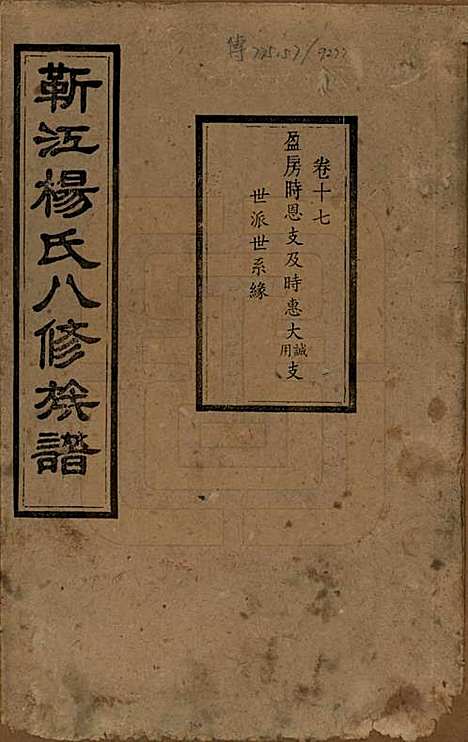 傳 775.159/9277
卷十七
盈房時恩支及時惠大誠用支
世派世系緣
靳江楊氏八修族譜